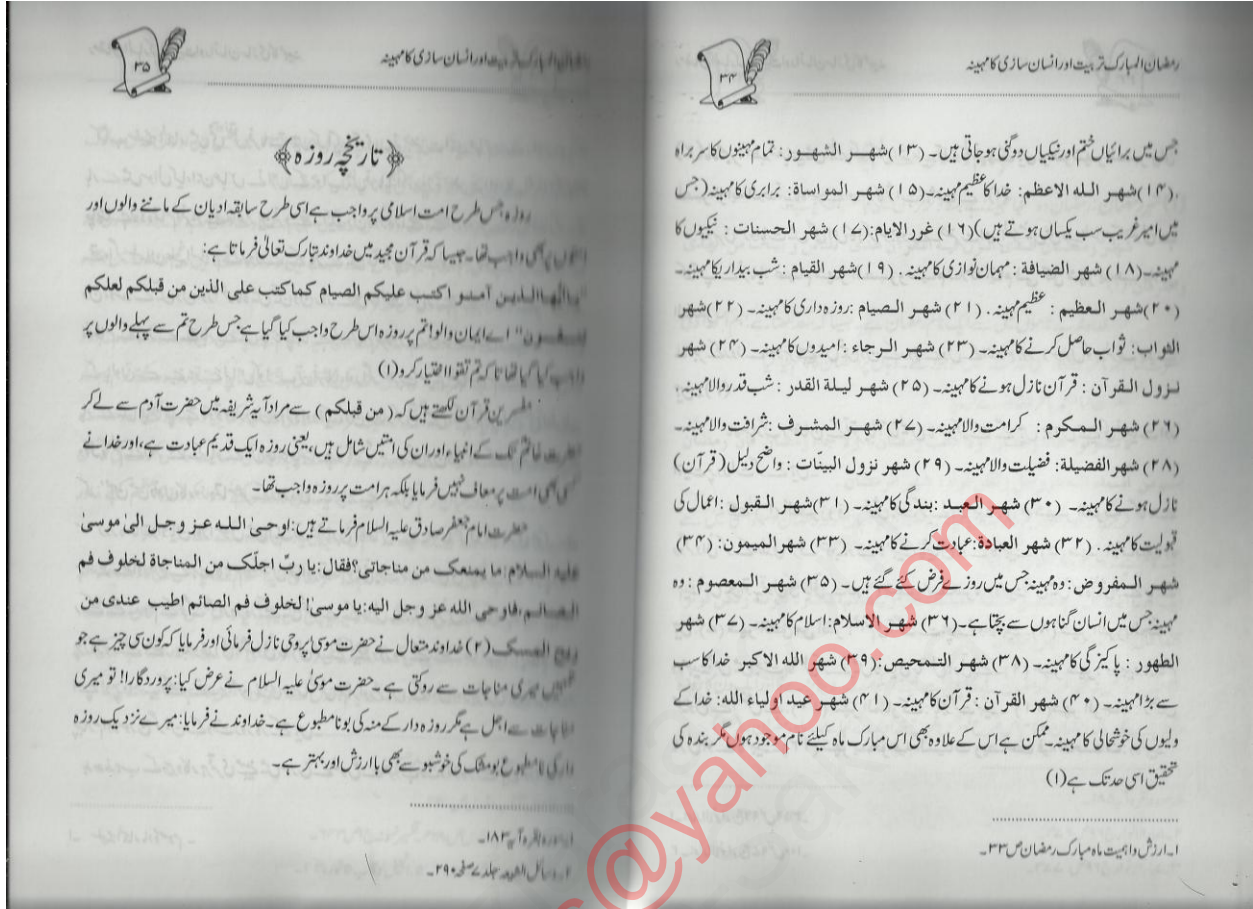 رمضان المبارک تربیت اور انسان سازی کا مہینہ
۳۴
جس میں برائیاں ختم اور نیکیاں دوگنی ہو جاتی ہیں۔ (۱۳) شهر الشهور: تمام مہینوں کا سربراہ
.(۱۴) شهر الله الاعظم: خدا کا عظیم مہینہ۔ (۱۵) شهر المواساة: برابری کا مہینہ (جس
میں امیر غریب سب یکساں ہوتے ہیں) (۱۶) غرر الایام: (۱۷) شهر الحسنات : نیکیوں کا
مہینہ۔ (۱۸) شهر الضیافة : مہمان نوازی کا مہینہ. (۱۹) شهر القیام : شب بیداری کا مہینہ۔
(۲۰) شهر العظیم : عظیم مہینہ. (۲۱) شهر الصیام :روزہ داری کا مہینہ۔ (۲۲) شهر
الثواب: ثواب حاصل کرنے کا مہینہ۔ (۲۳) شهر الرجاء :امیدوں کا مہینہ۔ (۲۴) شهر
نزول القرآن : قرآن نازل ہونے کا مہینہ۔ (۲۵) شهر لیلة القدر : شب قدر والا مہینہ.
(۲۶) شهر المکرم : کرامت والا مہینہ۔ (۲۷) شهر المشرف :شرافت والا مہینہ۔
(۲۸) شهر الفضیلة: فضیلت والا مہینہ۔ (۲۹) شهر نزول البینّات : واضح دلیل (قرآن)
نازل ہونے کا مہینہ۔ (۳۰) شهر العبد :بندگی کا مہینہ۔ (۳۱) شهر القبول :اعمال کی
قبولیت کا مہینہ. (۳۲) شهر العبادة:عبادت کرنے کا مہینہ۔ (۳۳) شهر المیمون: (۳۴)
شهر المفروض: وہ مہینہ جس میں روزے فرض کئے گئے ہیں۔ (۳۵) شهر المعصوم :وہ
مہینہ جس میں انسان گناہوں سے بچتا ہے۔ (۳۶) شهر الاسلام:اسلام کا مہینہ۔ (۳۷) شهر
الطهور : پاکیزگی کا مہینہ۔ (۳۸) شهر التمحیص: (۳۹) شهر الله الاکبر خدا کا سب
سے بڑا مہینہ۔ (۴۰) شهر القرآن :قرآن کا مہینہ۔ (۴۱) شهر عید اولیاء الله: خدا کے
ولیوں کی خوشحالی کا مہینہ۔ ممکن ہے اس کے علاوہ بھی اس مبارک ماہ کیلئے نام موجود ہوں مگر بندہ کی
تحقیق اسی حد تک ہے (۱)
۱۔ارزش و اہمیت ماہ مبارک رمضان ص ۳۳۔
المبارک تربیت اور انسان سازی کا مہینہ
۳۵
﴿تاریخچہ روزہ﴾
روزہ جس طرح امت اسلامی پر واجب ہے اسی طرح سابقہ ادیان کے ماننے والوں اور
امتوں پر بھی واجب تھا۔ جیسا کہ قرآن مجید میں خداوند تبارک تعالیٰ فرماتا ہے:
"یا ایّها الذین آمنو اکتب علیکم الصیام کما کتب علی الذین من قبلکم لعلکم
تتقون" اے ایمان والو! تم پر روزہ اس طرح واجب کیا گیا ہے جس طرح تم سے پہلے والوں پر
واجب کیا گیا تھا تا کہ تم تقوا اختیار کرو (۱)
مفسرین قرآن لکھتے ہیں کہ (من قبلکم) سے مراد آیہ شریفہ میں حضرت آدم سے لے کر
حضرت خاتم تک کے انبیاء اور ان کی امتیں شامل ہیں، یعنی روزہ ایک قدیم عبادت ہے، اور خدا نے
کسی بھی امت پر معاف نہیں فرمایا بلکہ ہر امت پر روزہ واجب تھا۔
حضرت امام جعفر صادق علیہ السلام فرماتے ہیں: اوحیٰ الله عز وجل الیٰ موسیٰ
علیه السلام:ما یمنعک من مناجاتی؟فقال:یا ربّ اجلّک من المناجاة لخلوف فم
الصائم،فاوحی الله عز وجل الیه:یا موسیٰ! لخلوف فم الصائم اطیب عندی من
ریح المسک (۲) خداوند متعال نے حضرت موسیٰ پر وحی نازل فرمائی اور فرمایا کہ کون سی چیز ہے جو
تمہیں میری مناجات سے روکتی ہے۔ حضرت موسیٰ علیہ السلام نے عرض کیا: پروردگارا! تو میری
مناجات سے اجل ہے مگر روزہ دار کے منہ کی بو نا مطبوع ہے۔ خداوند نے فرمایا: میرے نزدیک روزہ
دار کی نا مطبوع بو مشک کی خوشبو سے بھی با ارزش اور بہتر ہے۔
۱۔سورہ بقرہ آیہ ۱۸۳۔
۲۔وسائل الشیعہ جلد ۷ صفحہ ۲۹۰۔
@yahoo.com